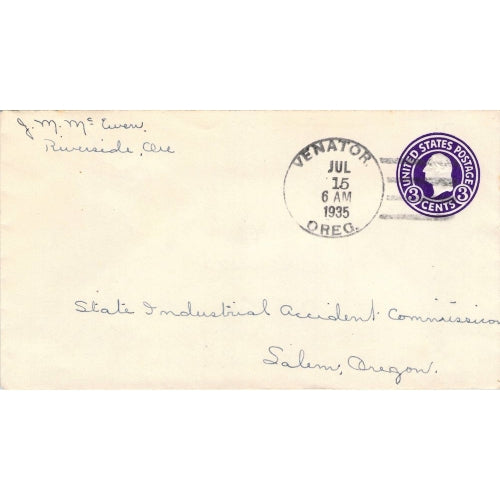 J. M. Mc Ewen,
Riverside, Ore
VENATOR.
JUL
15
6 AM
1935
OREG.
UNITED STATES POSTAGE
3 CENTS 3
State Industrial Accident Commission
Salem, Oregon.